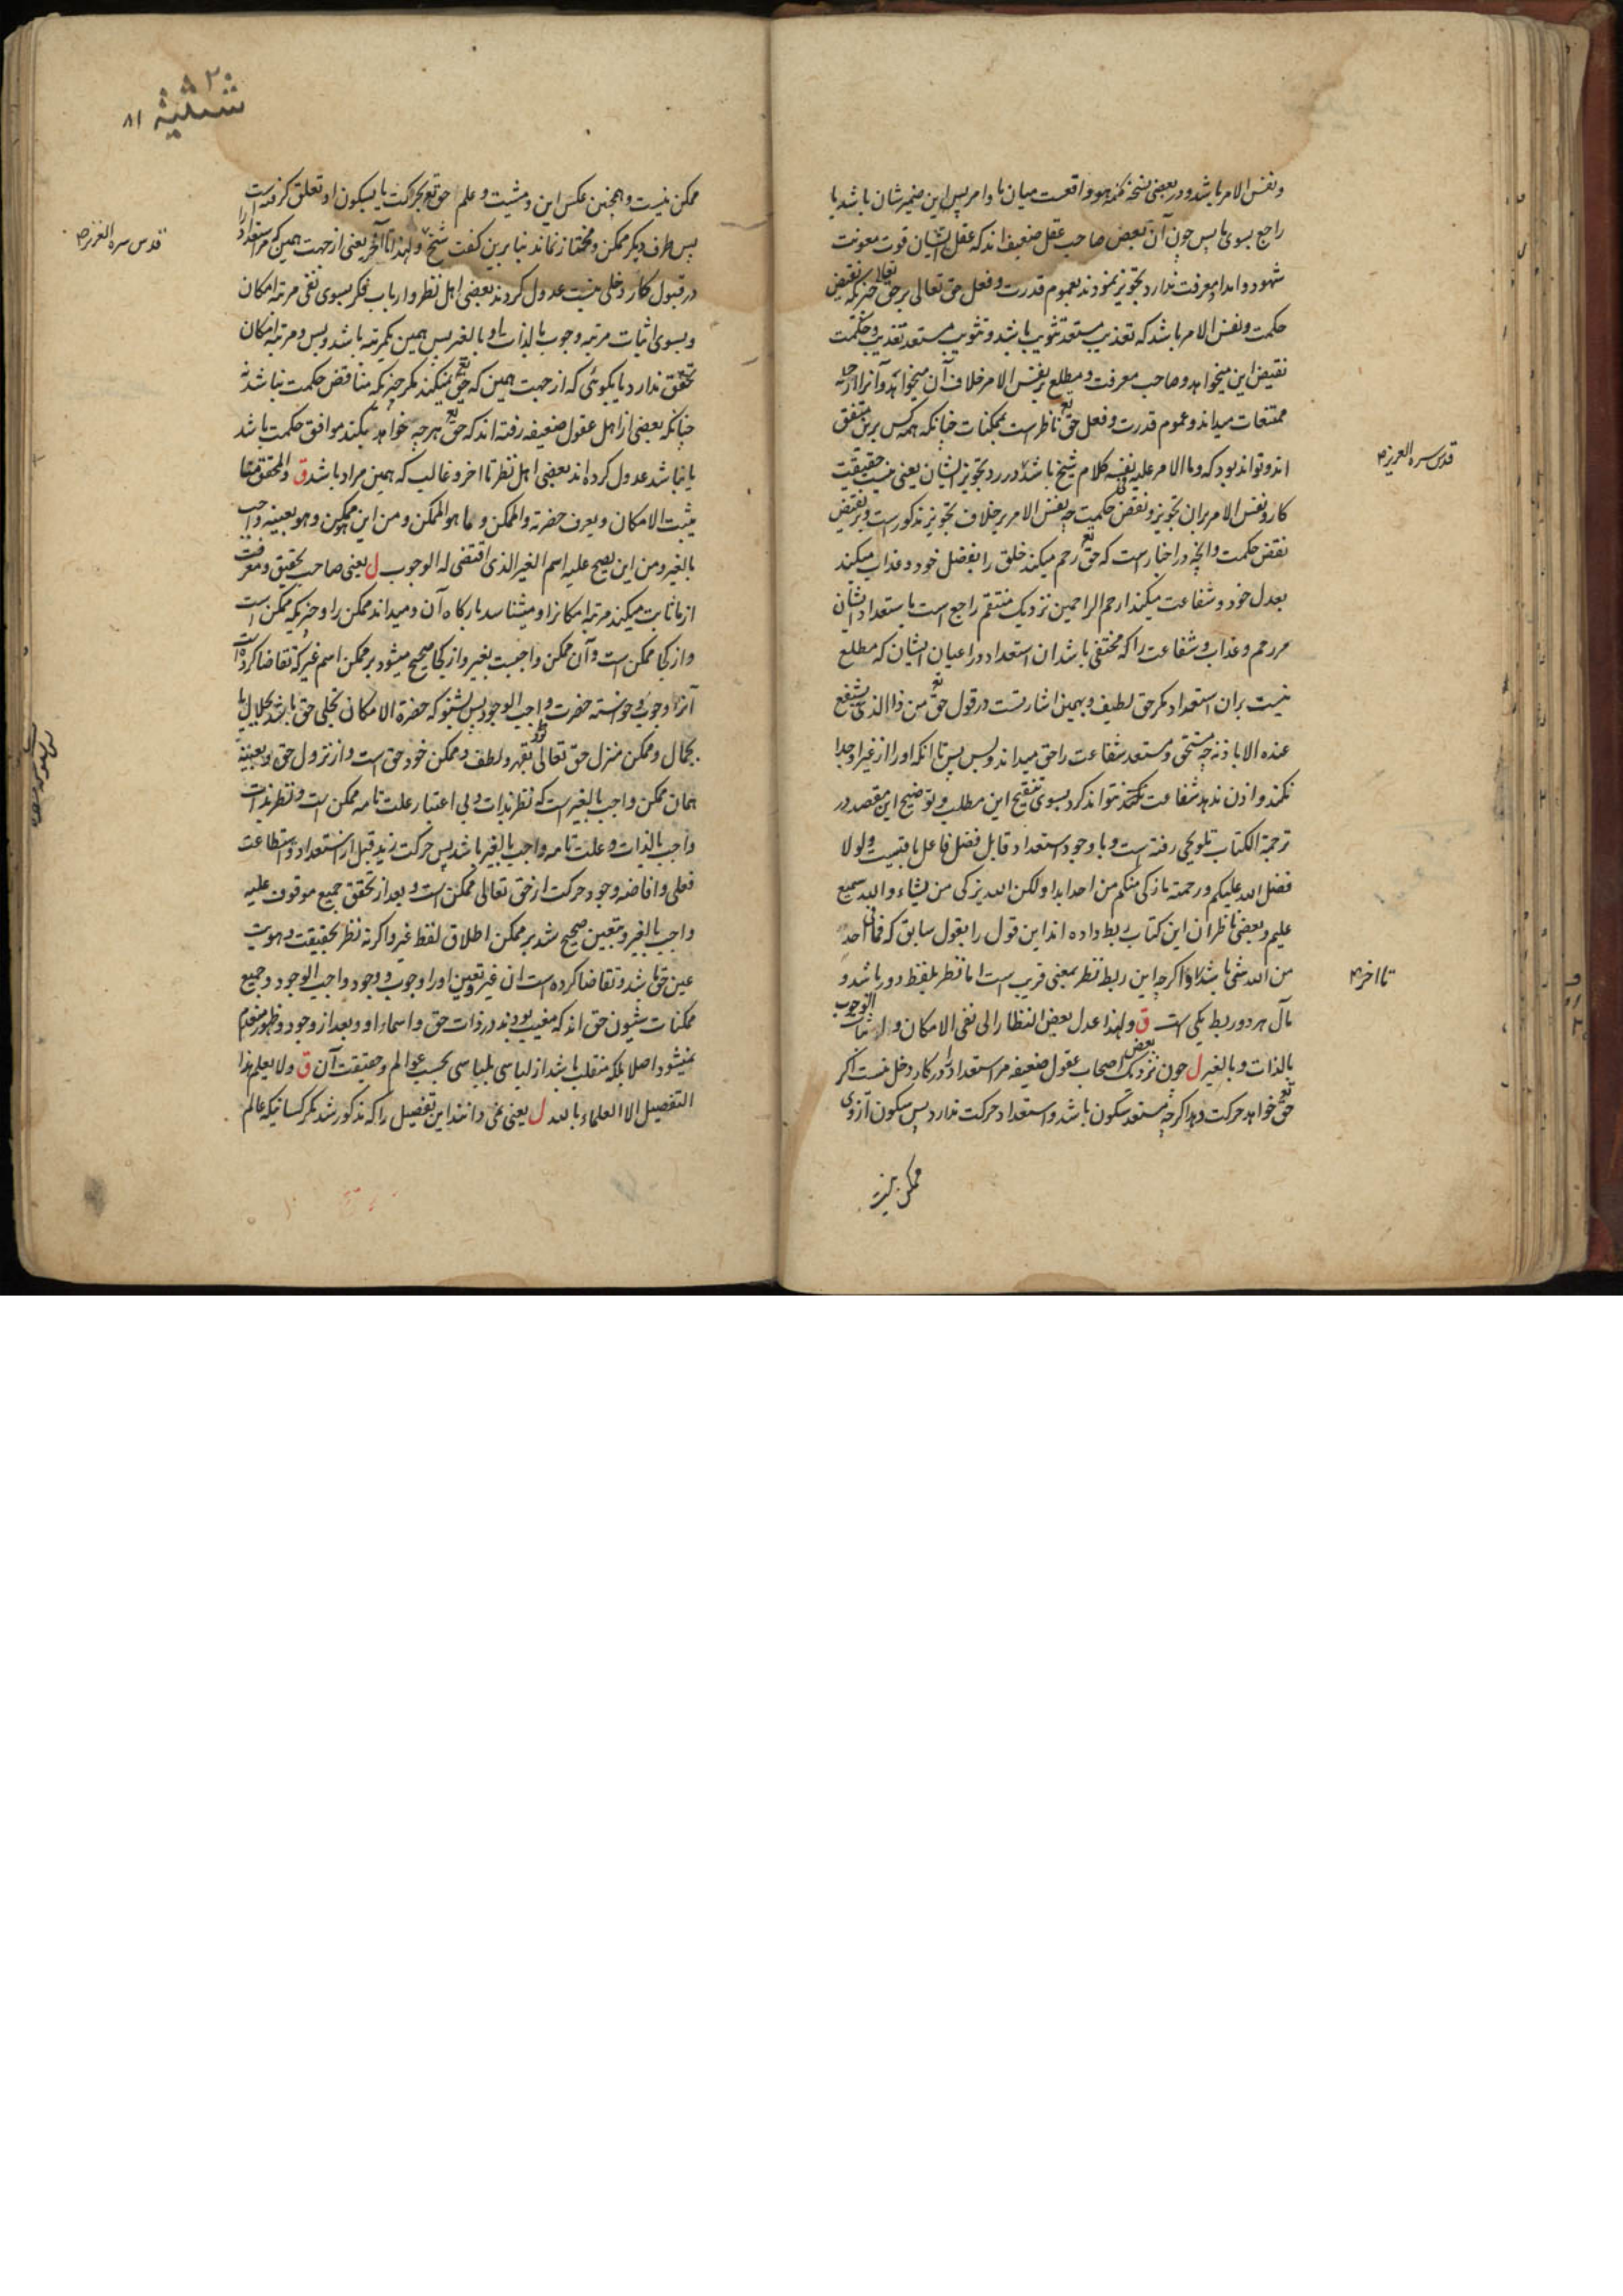 ونفس الامر باشد ودر بعضی نسخ کلمه هو واقعست میان ما وامر پس این ضمیر شان باشد یا
راجع بسوی ما پس چون آن بعض صاحب عقل ضعیف اند که عقل ایشان قوت معونت
شهود وامداد معرفت ندارد تجویز نمودند بعموم قدرت وفعل حق تعالی بر حق تعالی چیزیکه نقیض
حکمت ونفس الامر باشد که تعذیب مستعد تثویب باشد وتثویب مستعد تعذیب وحکمت
نقیض این میخواهد وصاحب معرفت ومطلع بر نفس الامر خلاف آن میخواهد وآنرا از جمله
ممتنعات میداند وعموم قدرت وفعل حق تع ناظر است بممکنات چنانکه همه کس برین متفق
اند وتواند بود که وما الامر علیه فی نفسه کلام شیخ باشد در رد تجویز ایشان یعنی نیست حقیقت
کار ونفس الامر بران تجویز ونقض حکمت چه نفس الامر بر خلاف تجویز مذکور است وبر نقیض
نقض حکمت وانچه در اخبار است که حق تع رحم میکند خلق را بفضل خود وعذاب میکند
بعدل خود وشفاعت میکند ارحم الراحمین نزدیک منتقم راجع است باستعداد ایشان
مر رحم وعذاب وشفاعت را که مختفی باشد ان استعداد در اعیان ایشان که مطلع
نیست بران استعداد مکر حق لطیف وبهمین اشارتست در قول حق تع من ذا الذی یشفع
عنده الا باذنه چه مستحق ومستعد شفاعت را حق میداند وبس پس تا انکه اورا از غیر او جدا
نکند واذن ندهد شفاعت کننده نتواند کرد بسوی تنقیح این مطلب وتوضیح این مقصد در
ترجمة الکتاب تلویحی رفته است وبا وجود استعداد قابل فضل فاعل باقیست ولو لا
فضل الله علیکم ورحمته ما زکی منکم من احد ابدا ولکن الله یزکی من یشاء والله سمیع
علیم وبعضی ناظران این کتاب ربط داده اند این قول را بقول سابق که فما فی احد
من الله شی باشد واکرچه این ربط نظر بمعنی قریب است اما نظر بلفظ دور باشد و
مآل هر دو ربط یکی است ق ولهذا عدل بعض النظار الی نفی الامکان واثبات الوجوب
بالذات وبالغیر ل چون نزدیک بعض اصحاب عقول ضعیفه مر استعداد را در کار دخل نیست اکر
حق تع خواهد حرکت دهد اکرچه مستعد سکون باشد واستعداد حرکت ندارد پس سکون از وی
ممکن نیست
قدس سره العزیز
تا اخر
۸۱
ممکن نیست وهمچنین عکس این ومشیت وعلم حق تع بحرکت یا بسکون او تعلق کرفته است
پس طرف دیکر ممکن ومختار نماند بنا برین کفت شیخ ولهذا تا آخر یعنی از جهت همین که مر استعداد را
در قبول کار دخلی نیست عدول کردند بعضی اهل نظر وارباب فکر بسوی نفی مرتبه امکان
وبسوی اثبات مرتبه وجوب بالذات وبالغیر پس همین یکمرتبه باشد وبس ومرتبه امکان
تحقق ندارد یا بکوئی که از جهت همین که حق تع میکند مکر چیزیکه مناقض حکمت نباشد نه
چنانکه بعضی از اهل عقول ضعیفه رفته اند که حق تع هر چه خواهد بکند موافق حکمت باشد
یا نباشد عدول کرده اند بعضی اهل نظر تا اخر وغالب که همین مراد باشد ق والمحقق منا
یثبت الامکان ویعرف حضرته والممکن وما هو الممکن ومن این هو ممکن وهو بعینه واجب
بالغیر ومن این یصح علیه اسم الغیر الذی اقتضی له الوجوب ل یعنی صاحب تحقیق ومعرفت
از ما ثابت میکند مرتبه امکانرا ومیشناسد بارکاه آن ومیداند ممکن را وچیزیکه ممکن است
واز کجا ممکن است وآن ممکن واجبست بغیر واز کجا صحیح میشود بر ممکن اسم غیر که تقاضا کرده است
آنرا وجوب وخواسته حضرت واجب الوجود پس بشنو که حضرة الامکان تجلی حق باشد بجلال یا
بجمال وممکن منزل حق تعالی بقهر ولطف وممکن خود حق است واز نزول حق وبعینه
همان ممکن واجب بالغیر است که نظر بذات وبی اعتبار علت تامه ممکن است ونظر بذات
واجب بالذات وعلت تامه واجب بالغیر باشد پس حرکت زید قبل از استعداد واستطاعت
فعلی وافاضه وجود حرکت از حق تعالی ممکن است وبعد از تحقق جمیع موقوف علیه
واجب بالغیر وبتعین صحیح شد بر ممکن اطلاق لفظ غیر واکر نه نظر بحقیقت وهویت
عین حق باشد وتقاضا کرده است ان غیر وتعین اورا وجوب ووجود واجب الوجود وجمیع
ممکنات شیون حق اند که مغیب بودند در ذات حق واسماء او وبعد از وجود وظهور منعدم
نمیشود اصلا بلکه منقلب باشد از لباسی بلباسی بحسب عوالم وحقیقت آن ق ولا یعلم هذا
التفصیل الا العلماء بالله ل یعنی نمی دانند این تفصیل را که مذکور شد مکر کسانیکه عالم
قدس سره العزیز